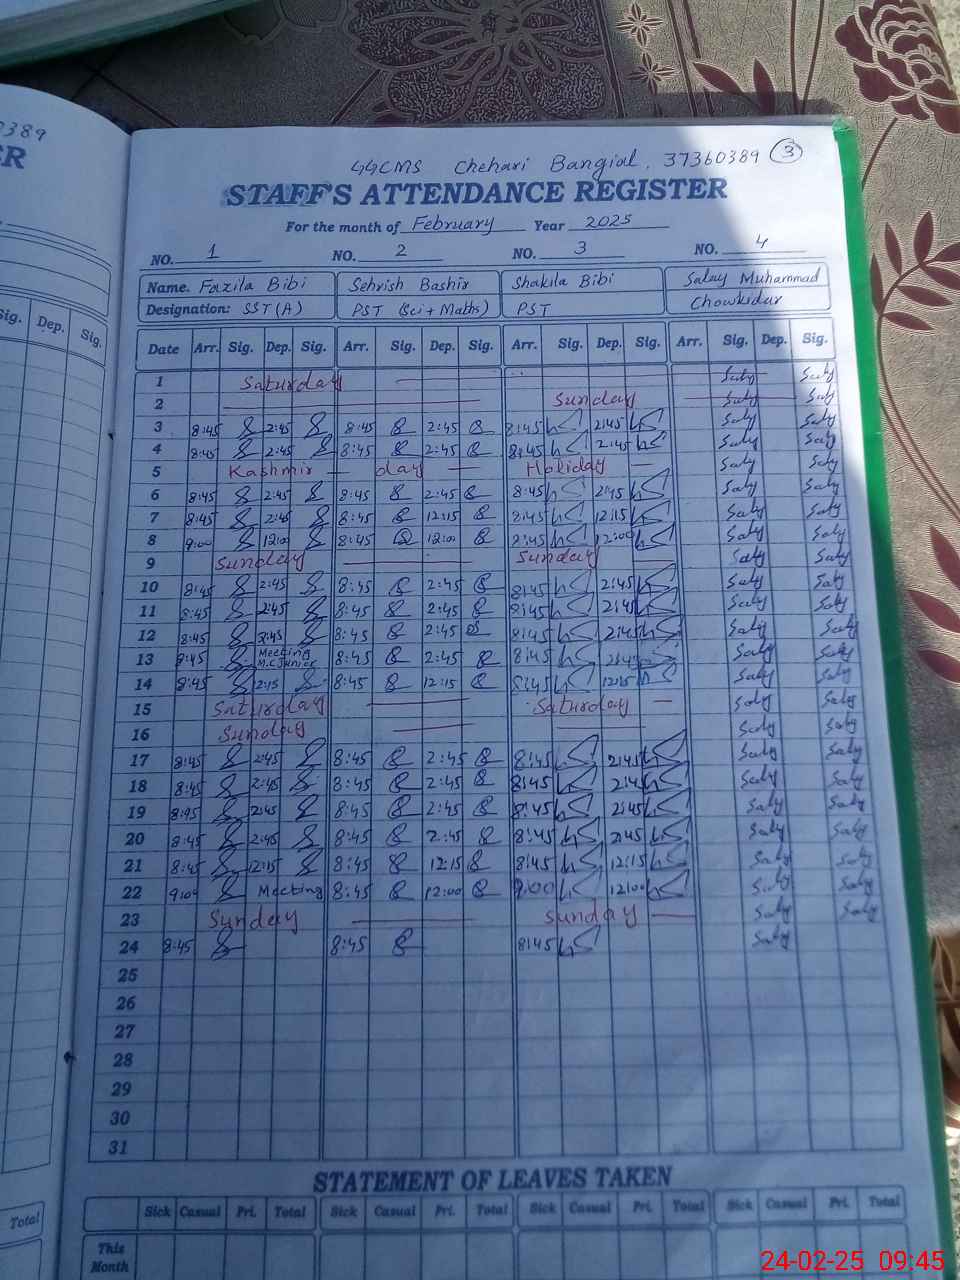 0389
ER
Sig. Dep. Sig.
44CMS Chehari Bangial. 37360389 3
STAFF'S ATTENDANCE REGISTER
For the month of February Year 2025
NO. 1 NO. 2 NO. 3 NO. 4
Name. Fazila Bibi Sehrish Bashir Shakila Bibi Salay Muhammad
Designation: SST (A) PST (Sci + Maths) PST Chowkidar
Date Arr. Sig. Dep. Sig. Arr. Sig. Dep. Sig. Arr. Sig. Dep. Sig. Arr. Sig. Dep. Sig.
1 Saturday Saly Saly
2 Sunday Saly Saly
3 8:45 2:45 8:45 2:45 8:45 2:45 Saly Saly
4 8:45 2:45 8:45 2:45 8:45 2:45 Saly Saly
5 Kashmir day Holiday Saly Saly
6 8:45 2:45 8:45 2:45 8:45 2:45 Saly Saly
7 8:45 2:45 8:45 12:15 8:45 12:15 Saly Saly
8 9:00 12:00 8:45 12:00 8:45 12:00 Saly Saly
9 Sunday Sunday Saly Saly
10 8:45 2:45 8:45 2:45 8:45 2:45 Saly Saly
11 8:45 2:45 8:45 2:45 8:45 2:45 Saly Saly
12 8:45 2:45 8:45 2:45 8:45 2:45 Saly Saly
13 8:45 Meeting M.C Junior 8:45 2:45 8:45 2:45 Saly Saly
14 8:45 2:15 8:45 12:15 8:45 12:15 Saly Saly
15 Saturday Saturday Saly Saly
16 Sunday Saly Saly
17 8:45 2:45 8:45 2:45 8:45 2:45 Saly Saly
18 8:45 2:45 8:45 2:45 8:45 2:45 Saly Saly
19 8:45 2:45 8:45 2:45 8:45 2:45 Saly Saly
20 8:45 2:45 8:45 2:45 8:45 2:45 Saly Saly
21 8:45 12:15 8:45 12:15 8:45 12:15 Saly Saly
22 9:00 Meeting 8:45 12:00 9:00 12:00 Saly Saly
23 Sunday Sunday Saly Saly
24 8:45 8:45 8:45 Saly
25
26
27
28
29
30
31
STATEMENT OF LEAVES TAKEN
Sick Casual Pri. Total Sick Casual Pri. Total Sick Casual Pri. Total Sick Casual Pri. Total
Total
This Month
24-02-25 09:45